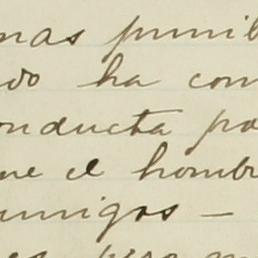 mas punib
do ha com
onducta po
ne el hombr
umigos —
es pero m